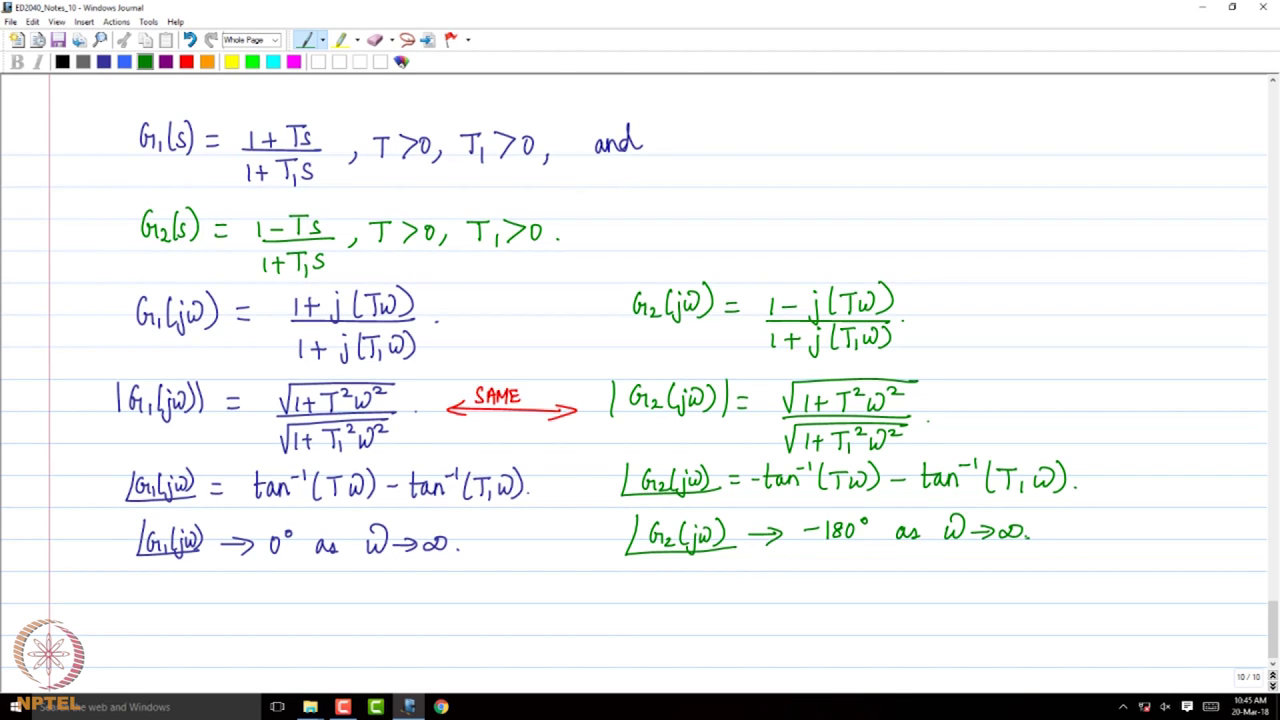 ED2040_Notes_10 - Windows Journal
File Edit View Insert Actions Tools Help
Whole Page
B I
G₁(s) = (1 + Ts)/(1 + T₁s) , T > 0, T₁ > 0, and
G₂(s) = (1 - Ts)/(1 + T₁s) , T > 0, T₁ > 0 .
G₁(jω) = (1 + j(Tω))/(1 + j(T₁ω)) . G₂(jω) = (1 - j(Tω))/(1 + j(T₁ω)) .
|G₁(jω)| = √(1 + T²ω²)/√(1 + T₁²ω²) . SAME |G₂(jω)| = √(1 + T²ω²)/√(1 + T₁²ω²) .
∠G₁(jω) = tan⁻¹(Tω) - tan⁻¹(T₁ω). ∠G₂(jω) = -tan⁻¹(Tω) - tan⁻¹(T₁ω).
∠G₁(jω) → 0° as ω → ∞. ∠G₂(jω) → -180° as ω → ∞.
10 / 10
NPTEL
Search the web and Windows
10:45 AM
20-Mar-18